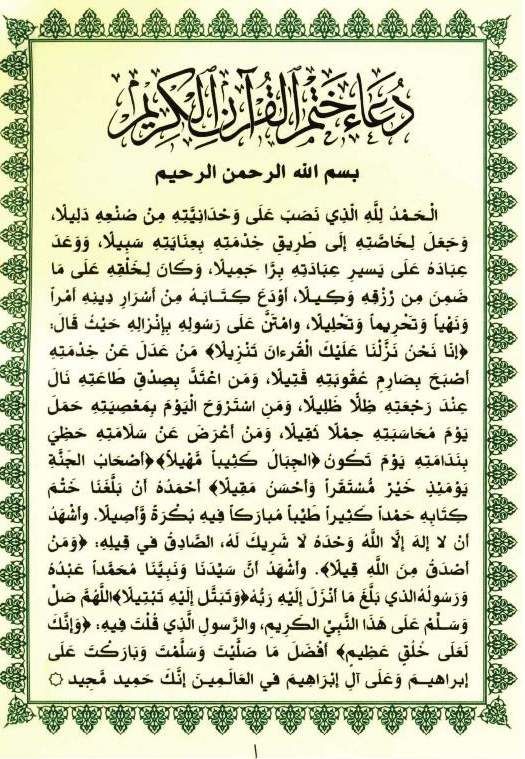 دُعَاءُ خَتْمِ ٱلْقُرْآنِ ٱلْكَرِيمِ
بسم الله الرحمن الرحيم
الْحَمْدُ لِلَّهِ الَّذِي نَصَبَ عَلَى وَحْدَانِيَّتِهِ مِنْ صُنْعِهِ دَلِيلًا،
وَجَعَلَ لِخَاصَّتِهِ إِلَى طَرِيقِ خِدْمَتِهِ بِعِنَايَتِهِ سَبِيلًا، وَوَعَدَ
عِبَادَهُ عَلَى يَسيرِ عِبَادَتِهِ بِرًّا جَمِيلًا، وَكَانَ لِخَلْقِهِ عَلَى مَا
ضَمِنَ مِن رِزْقِهِ وَكِيلًا، أَوْدَعَ كِتَابَهُ مِنْ أَسْرَارِ دِينِهِ أَمْراً
وَنَهْياً وَتَحْرِيماً وَتَحْلِيلًا، وامْتَنَّ عَلَى رَسُولِهِ بِإِنْزالِهِ حَيْثُ قَالَ:
﴿إِنَّا نَحْنُ نَزَّلْنَا عَلَيْكَ الْقُرءانَ تَنْزِيلًا﴾ مَنْ عَدَلَ عَنْ خِدْمَتِهِ
أَصْبَحَ بِصَارِمِ عُقُوبَتِهِ قَتِيلًا، وَمَن اعْتَدَّ بِصِدْقِ طَاعَتِهِ نَالَ
عِنْدَ رَجْعَتِهِ ظِلًّا ظَلِيلًا، وَمَنِ اسْتَرْوَحَ الْيَوْمَ بِمَعْصِيَتِهِ حَمَلَ
يَوْمَ مُحَاسَبَتِهِ حِمْلًا ثَقِيلًا، وَمَنْ أَعْرَضَ عَنْ سَلَامَتِهِ حَظِيَ
بِنَدَامَتِهِ يَوْمَ تَكُونُ ﴿الجِبَالُ كَثِيباً مَّهِيلاً﴾ ﴿أَصْحَابُ الجَنَّةِ
يَوْمَئِذٍ خَيْرٌ مُّسْتَقَرّاً وَأَحْسَنُ مَقِيلًا﴾ أَحْمَدُهُ أَنْ بَلَّغَنَا خَتْمَ
كِتَابِهِ حَمْداً كَثِيراً طَيِّباً مُبَارَكاً فِيهِ بُكْرَةً وَّأَصِيلًا. وأَشْهَدُ
أَنْ لا إلهَ إلَّا اللَّهُ وَحْدَهُ لَا شَرِيكَ لَهُ، الصَّادِقُ في قِيلِهِ: ﴿وَمَنْ
أَصْدَقُ مِنَ اللَّهِ قِيلًا﴾. وأَشْهَدُ أَنَّ سَيِّدَنَا وَنَبِيَّنَا مُحَمَّداً عَبْدُهُ
وَرَسُولُهُ الذي بَلَّغَ مَا أَنْزَلَ إِلَيْهِ رَبُّهُ ﴿وَتَبَتَّلْ إِلَيْهِ تَبْتِيلًا﴾ اللَّهُمَّ صَلِّ
وَسَلِّمْ عَلَى هَذَا النَّبِيِّ الكَريمِ، والرَّسولِ الَّذِي قُلْتَ فِيهِ: ﴿وَإِنَّكَ
لَعَلَى خُلُقٍ عَظِيمٍ﴾ أَفْضَلَ مَا صَلَّيْتَ وَسَلَّمْتَ وَبَارَكْتَ عَلَى
إبراهيمَ وَعَلَى آلِ إِبْرَاهِيمَ في العَالَمِينَ إِنَّكَ حَمِيد مَّجِيد ۞
١